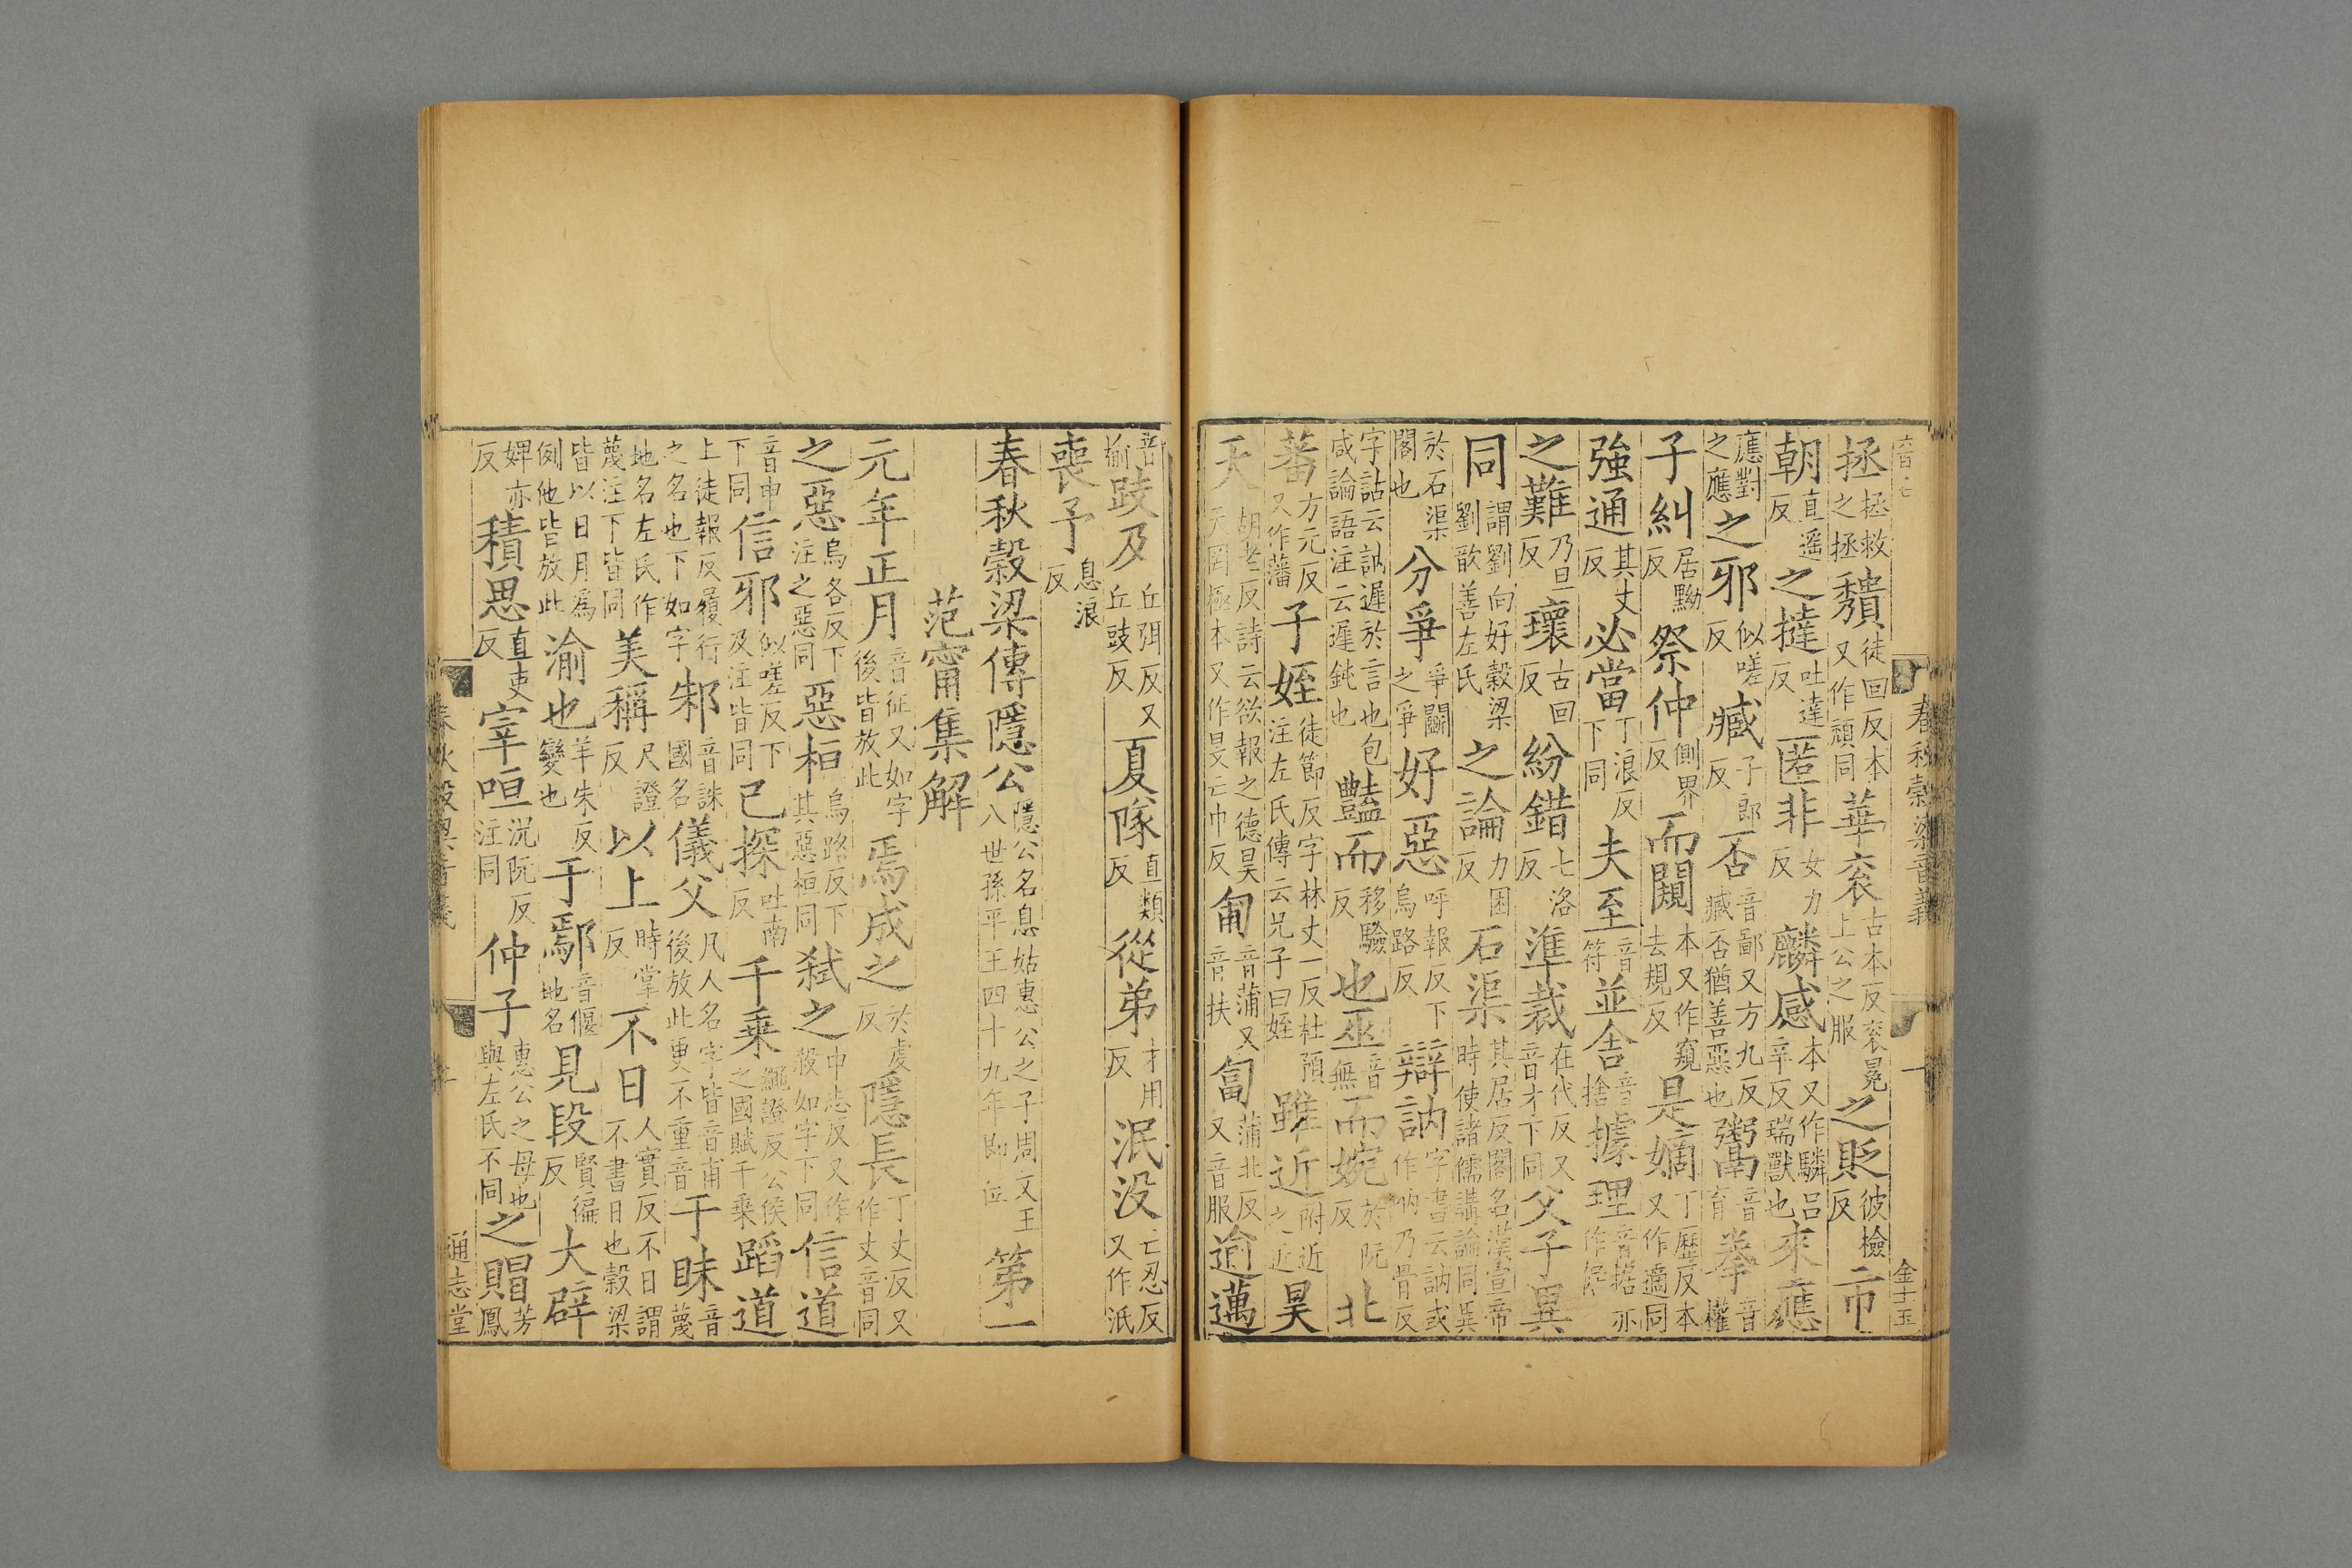 春秋穀梁音義 一 金士玉
拯拯救之拯穨徒回反本又作頹同華衮古本反衮冕上公之服之貶彼檢反一市
朝直遥反之撻吐達反匿非女力反麟感本又作驎呂辛反瑞獸也來應
應對之應之邪似嗟反臧子郎反否音鄙又方九反臧否猶善惡也鬻音育拳音權
子糾居黝反祭仲側界反而闚本又作窺去規反是嫡丁歷反本又作適同
強通其丈反必當丁浪反下同夫至音符並舍音捨據理音据亦作
之難乃旦反瓌古回反紛錯七洛反準裁在代反又音才下同父子異
同謂劉向好穀梁劉歆善左氏之論力困反石渠其居反閣名漢宣帝時使諸儒講論同異
於石渠閣也分爭爭鬬之爭好惡呼報反下烏路反辯訥字書云訥或作吶乃骨反
字詁云訥遲於言也包咸論語注云遲鈍也豔而移驗反也巫音無而婉於阮反北
蕃方元反又作藩子姪徒節反字林丈一反杜預注左氏傳云兄子曰姪雖近附近之近昊
天胡老反詩云欲報之德昊天罔極本又作旻亡巾反匍音蒲又音扶匐蒲北反又音服逾邁
音榆跂及丘弭反又丘豉反夏隊直類反從弟才用反泯没亡忍反又作泯
喪予息浪反
春秋穀梁傳隱公隱公名息姑惠公之子周文王八世孫平王四十九年即位第一
范甯集解
元年正月音征又如字後皆放此焉成之於虔反隱長丁丈反又作丈音同
之惡烏各反下注之惡同惡桓烏路反下其惡桓同弑之申志反又作殺如字下同信道
音申下同信邪似嗟反下及注皆同已探吐南反千乗繩證反公侯之國賦千乗蹈道
上徒報反履行之名也下如字邾音誅國名儀父凡人名字皆音甫後放此更不重音于眛音蔑
地名左氏作蔑注下皆同美稱尺證反以上時掌反不日人實反不日謂不書日也穀梁
皆以日月爲例他皆放此渝也羊朱反變也于鄢音偃地名見段賢徧反大辟
婢亦反積思直吏反宰咺況阮反注同仲子惠公之母也與左氏不同之賵芳鳳
通志堂